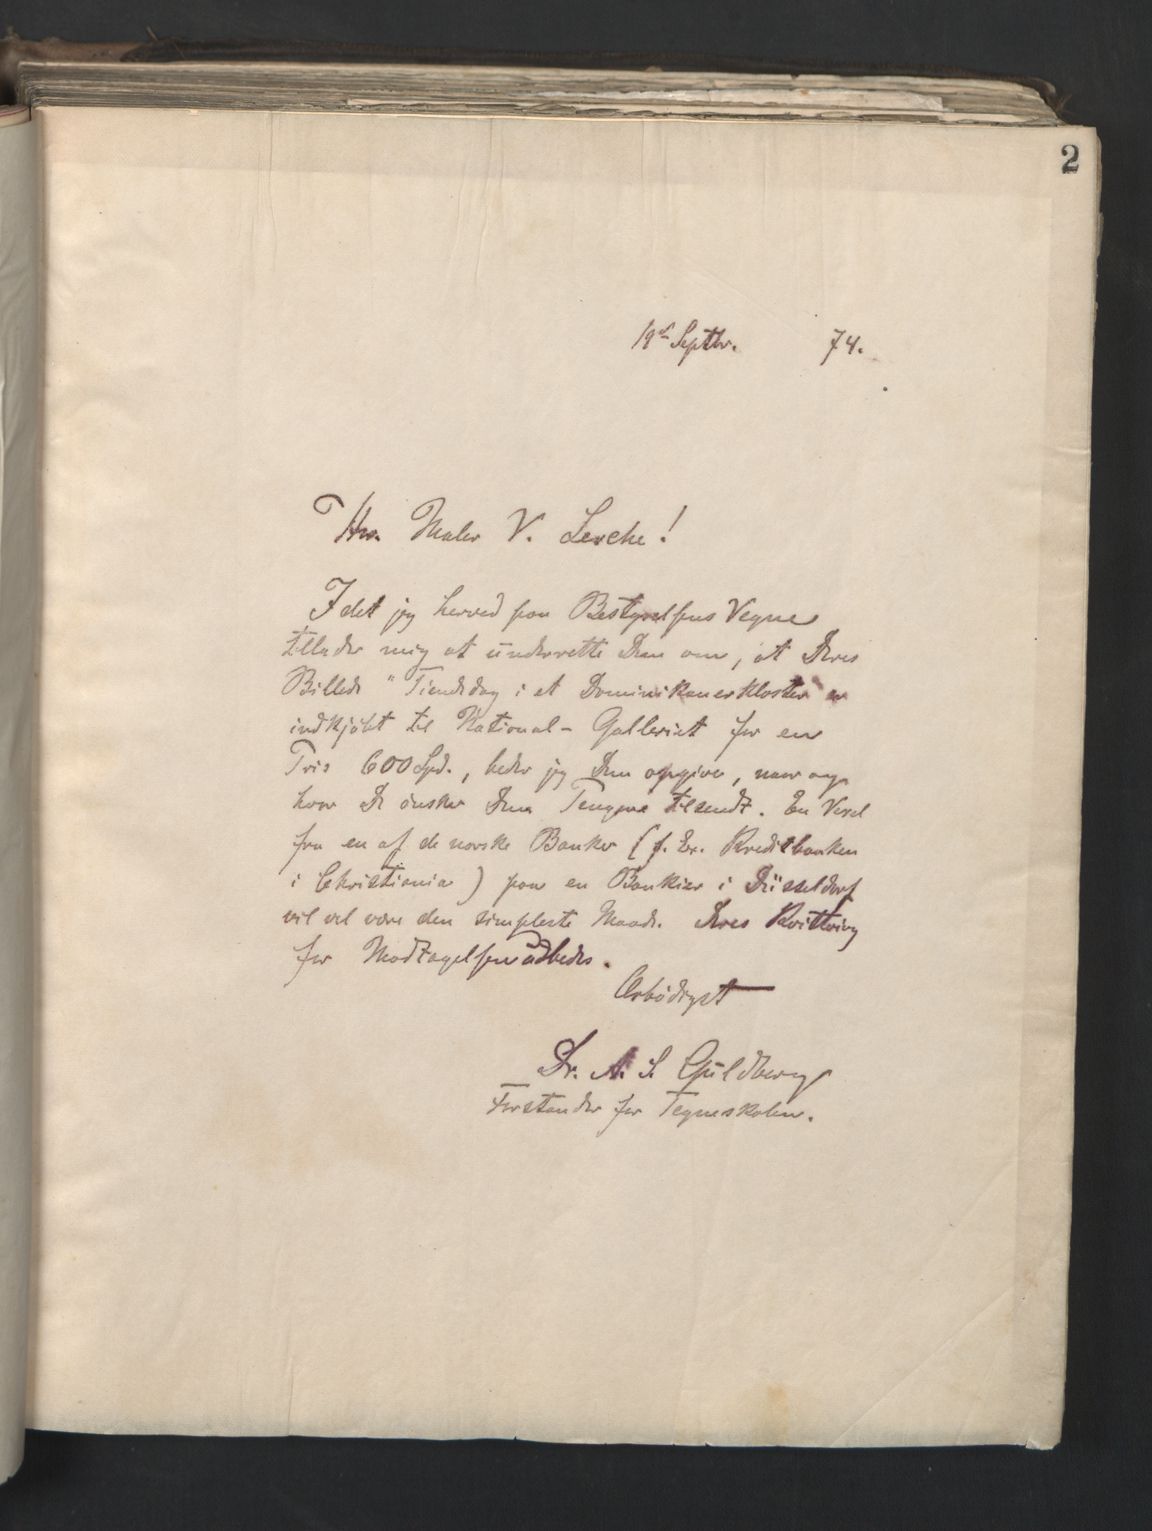 2
19de Septbr. 74.
Hr. Maler V. Lerche!
Idet jeg herved paa Bestyrelsens Vegne
tillader mig at underrette Dem om, at Deres
Billede "Tiendedag i et Dominikanerkloster" er
indkjøbt til National-Galleriet for en
Pris 600 Spd., beder jeg Dem opgive, naar og
hvor De ønsker Dem Pengene tilsendt. En Vexel
fra en af de norske Banker (f. Ex. Kreditbanken
i Christiania) paa en Bankier i Düsseldorf
vil vel være den simpleste Maade. Deres Kvittering
for Modtagelsen udbedes.
Ærbødigst
Dr. A. S. Guldberg
Forstander for Tegneskolen.